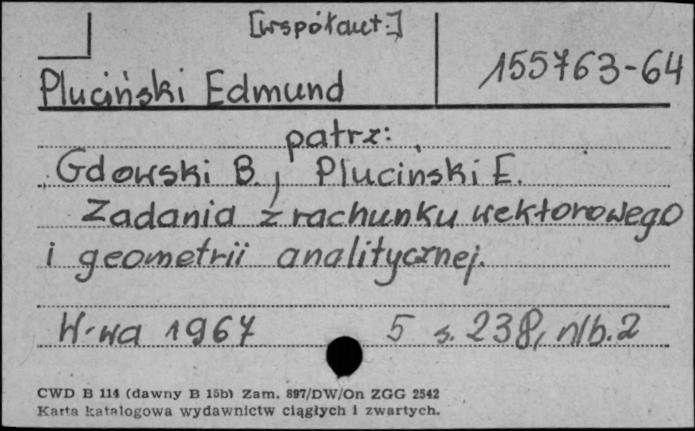 [współaut.]
155763-64
Pluciński Edmund
patrz:
Gdowski B., Plucinski E.
Zadania z rachunku wektorowego
i geometrii analitycznej.
W-wa 1967 5 s. 238, nlb. 2
CWD B 114 (dawny B 15b) Zam. 897/DW/On ZGG 2542
Karta katalogowa wydawnictw ciągłych i zwartych.